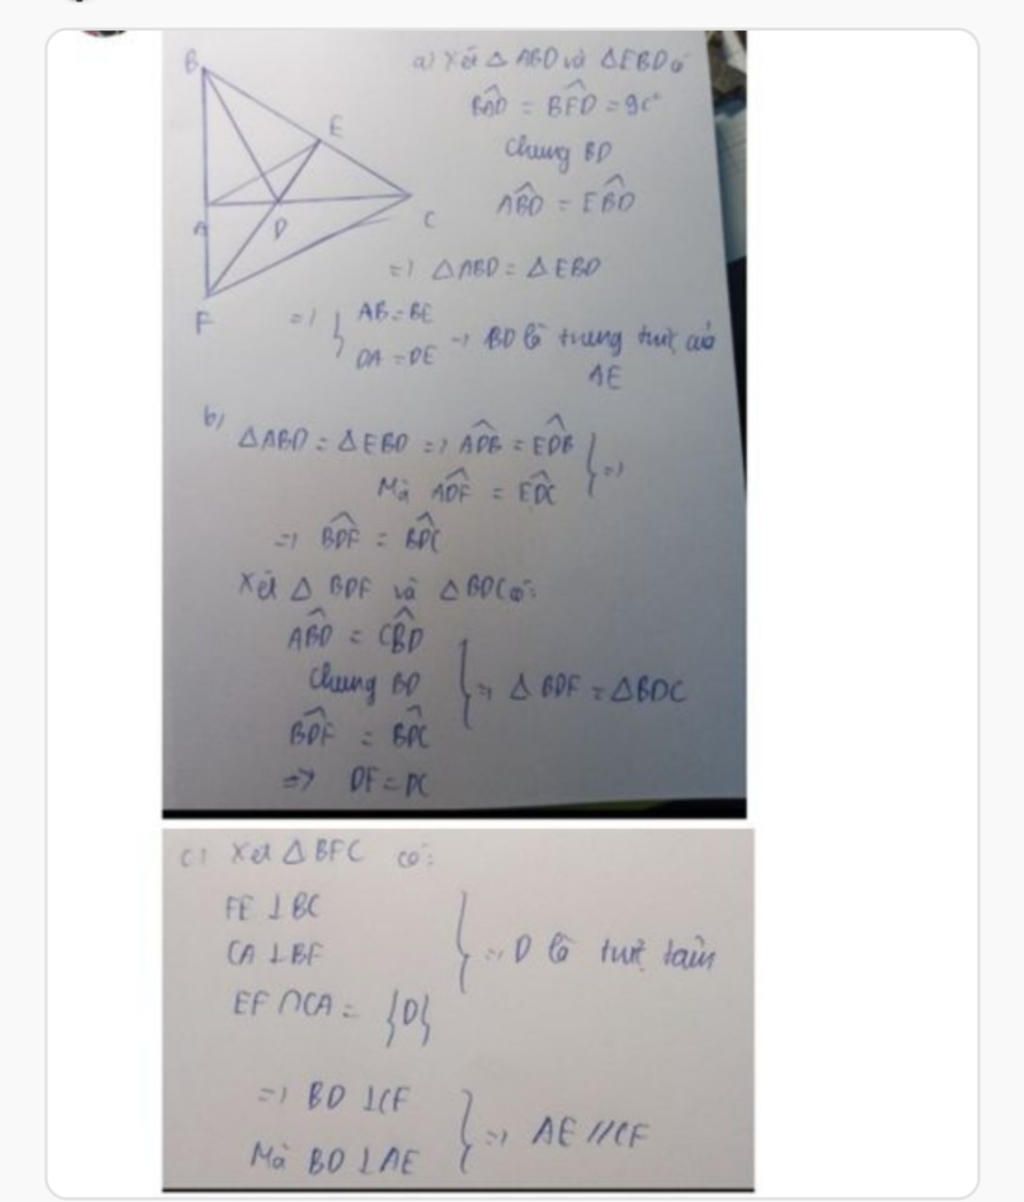 B
E
A
D
C
F
a) Xét △ ABD và △EBD có
BÂD = BÊD = 90°
Chung BD
ABD̂ = EBD̂
=> △ABD = △EBD
=> { AB = BE
DA = DE
=> BD là trung trực của
AE
b)
△ABD = △EBD => ADB̂ = EDB̂ } =>
Mà ADF̂ = EDĈ
=> BDF̂ = BDĈ
Xét △ BDF và △ BDC có:
ABD̂ = CBD̂
Chung BD } => △ BDF = △BDC
BDF̂ = BDĈ
=> DF = DC
c) Xét △ BFC có:
FE ⊥ BC
CA ⊥ BF } => D là trực tâm
EF ∩ CA = {D}
=> BD ⊥ CF
Mà BD ⊥ AE } => AE // CF